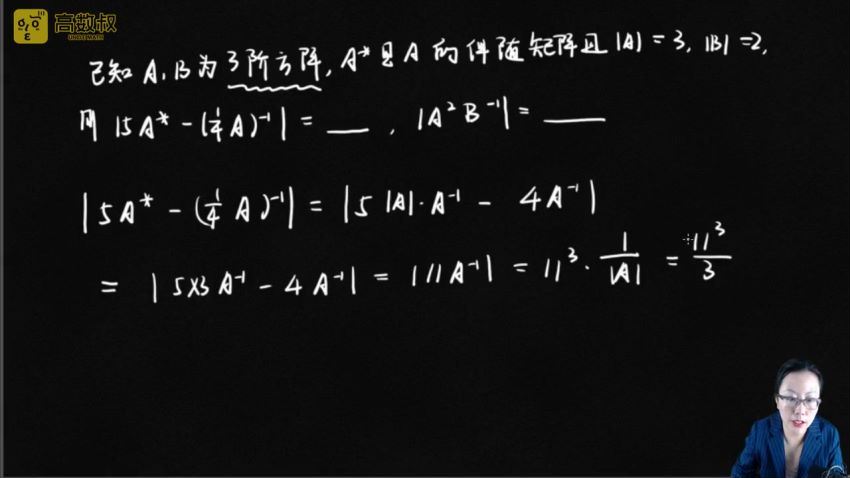 高数叔
UNCLE MATH
已知 A,B为3阶方阵, A* 是 A 的伴随矩阵且 |A| = 3, |B| = 2,
则 |5A* - (1/4 A)⁻¹| = ___ , |A²B⁻¹| = ___
|5A* - (1/4 A)⁻¹| = |5|A|·A⁻¹ - 4A⁻¹|
= |5×3A⁻¹ - 4A⁻¹| = |11A⁻¹| = 11³ · 1/|A| = 11³/3